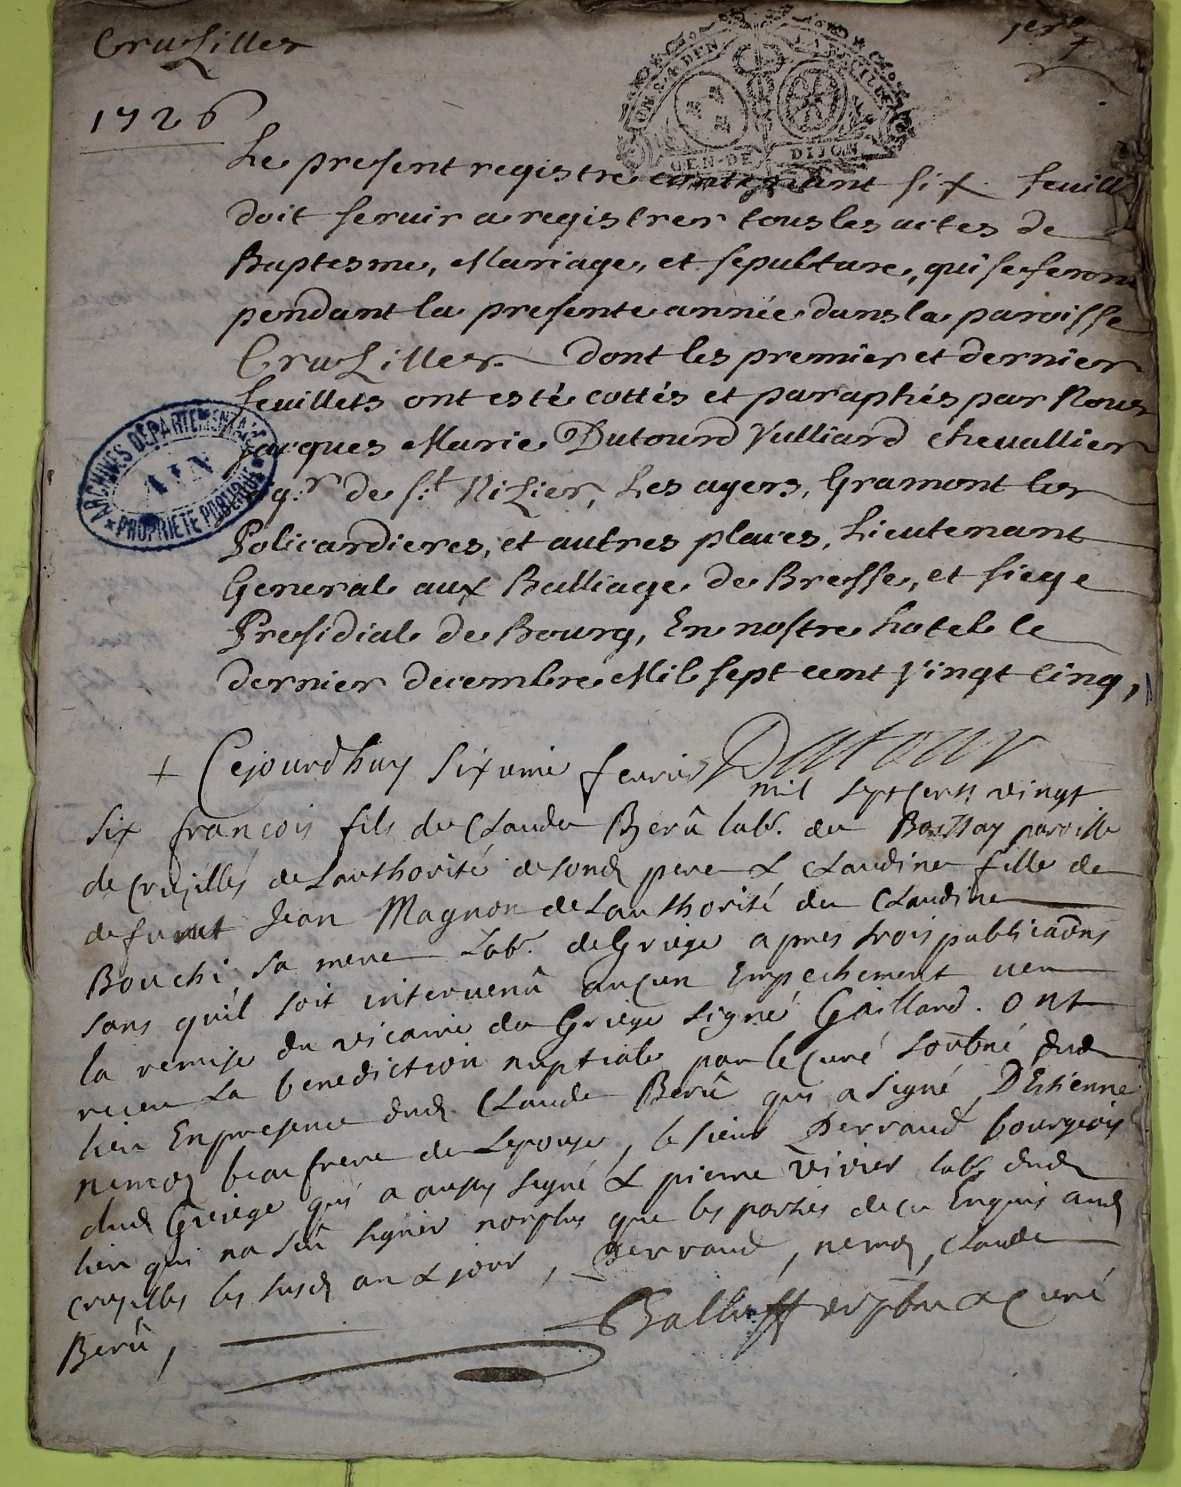 CruZilles
1er
1726
GEN. DE DIJON
Le present registre contenant six feuill
doit seruir a registrer tous les actes de
Baptesme, Mariage, et sepulture, qui se feront
pendant la presente année dans la paroisse
CruZilles dont les premier et dernier
feuillets ont esté cottés et paraphés par Nous
Jacques Marie Dutourd Vulliard cheuallier
sgr de st Nizier, Les agers, Gramont les
Policardieres, et autres places, Lieutenant
General aux Balliage de Bresse, et siege
Presidial de Bourg, En nostre hotel le
dernier decembre Mil sept cent Vingt Cinq,
ARCHIVES DÉPARTEMENTALES
AIN
PROPRIÉTÉ PUBLIQUE
Dutour
+ Cejourdhuy sixieme feurier
mil sept cens vingt
six francois fils de Claude Berû lab. de paroisse
de Cruzilles de Lauthorité de sond pere & Claudine fille de
defunct Jean Magnon de Lauthorité de Claudine
Bouchi sa mere Lab. de Griege apres trois publicaôns
sans quil soit interuenû aucun Empechement ueu
la remise du vicaire de Griege signé Gaillard. ont
receu La benediction nuptiale par le Curé soubné dud
lieu En presence dud. Claude Berû qui a signé, D'Estienne
nemoz beaufrere de Lepouse, le sieur Perraud bourgeois
dud Griege qui a aussy signé & pierre vivier lab. dud
lieu qui na sû signer non plus que les parties de ce Enquis aud
cruzilles les susd an & jour, Perraud, nemoz, Claude
Berû,
Curé